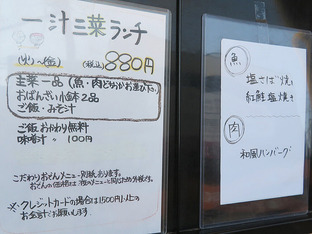 一汁三菜ランチ
(火)~(金) (税込) 880円
主菜一品 (魚・肉どちらかお選び下さい)
おばんざい小鉢2品
ご飯・みそ汁
ご飯おかわり無料
味噌汁 〃 100円
こだわりおでんメニュー別紙あります。
※クレジットカードの場合は1500円以上の
お会計でお願いします
魚
塩さば焼き
紅鮭塩焼き
肉
和風ハンバーグ